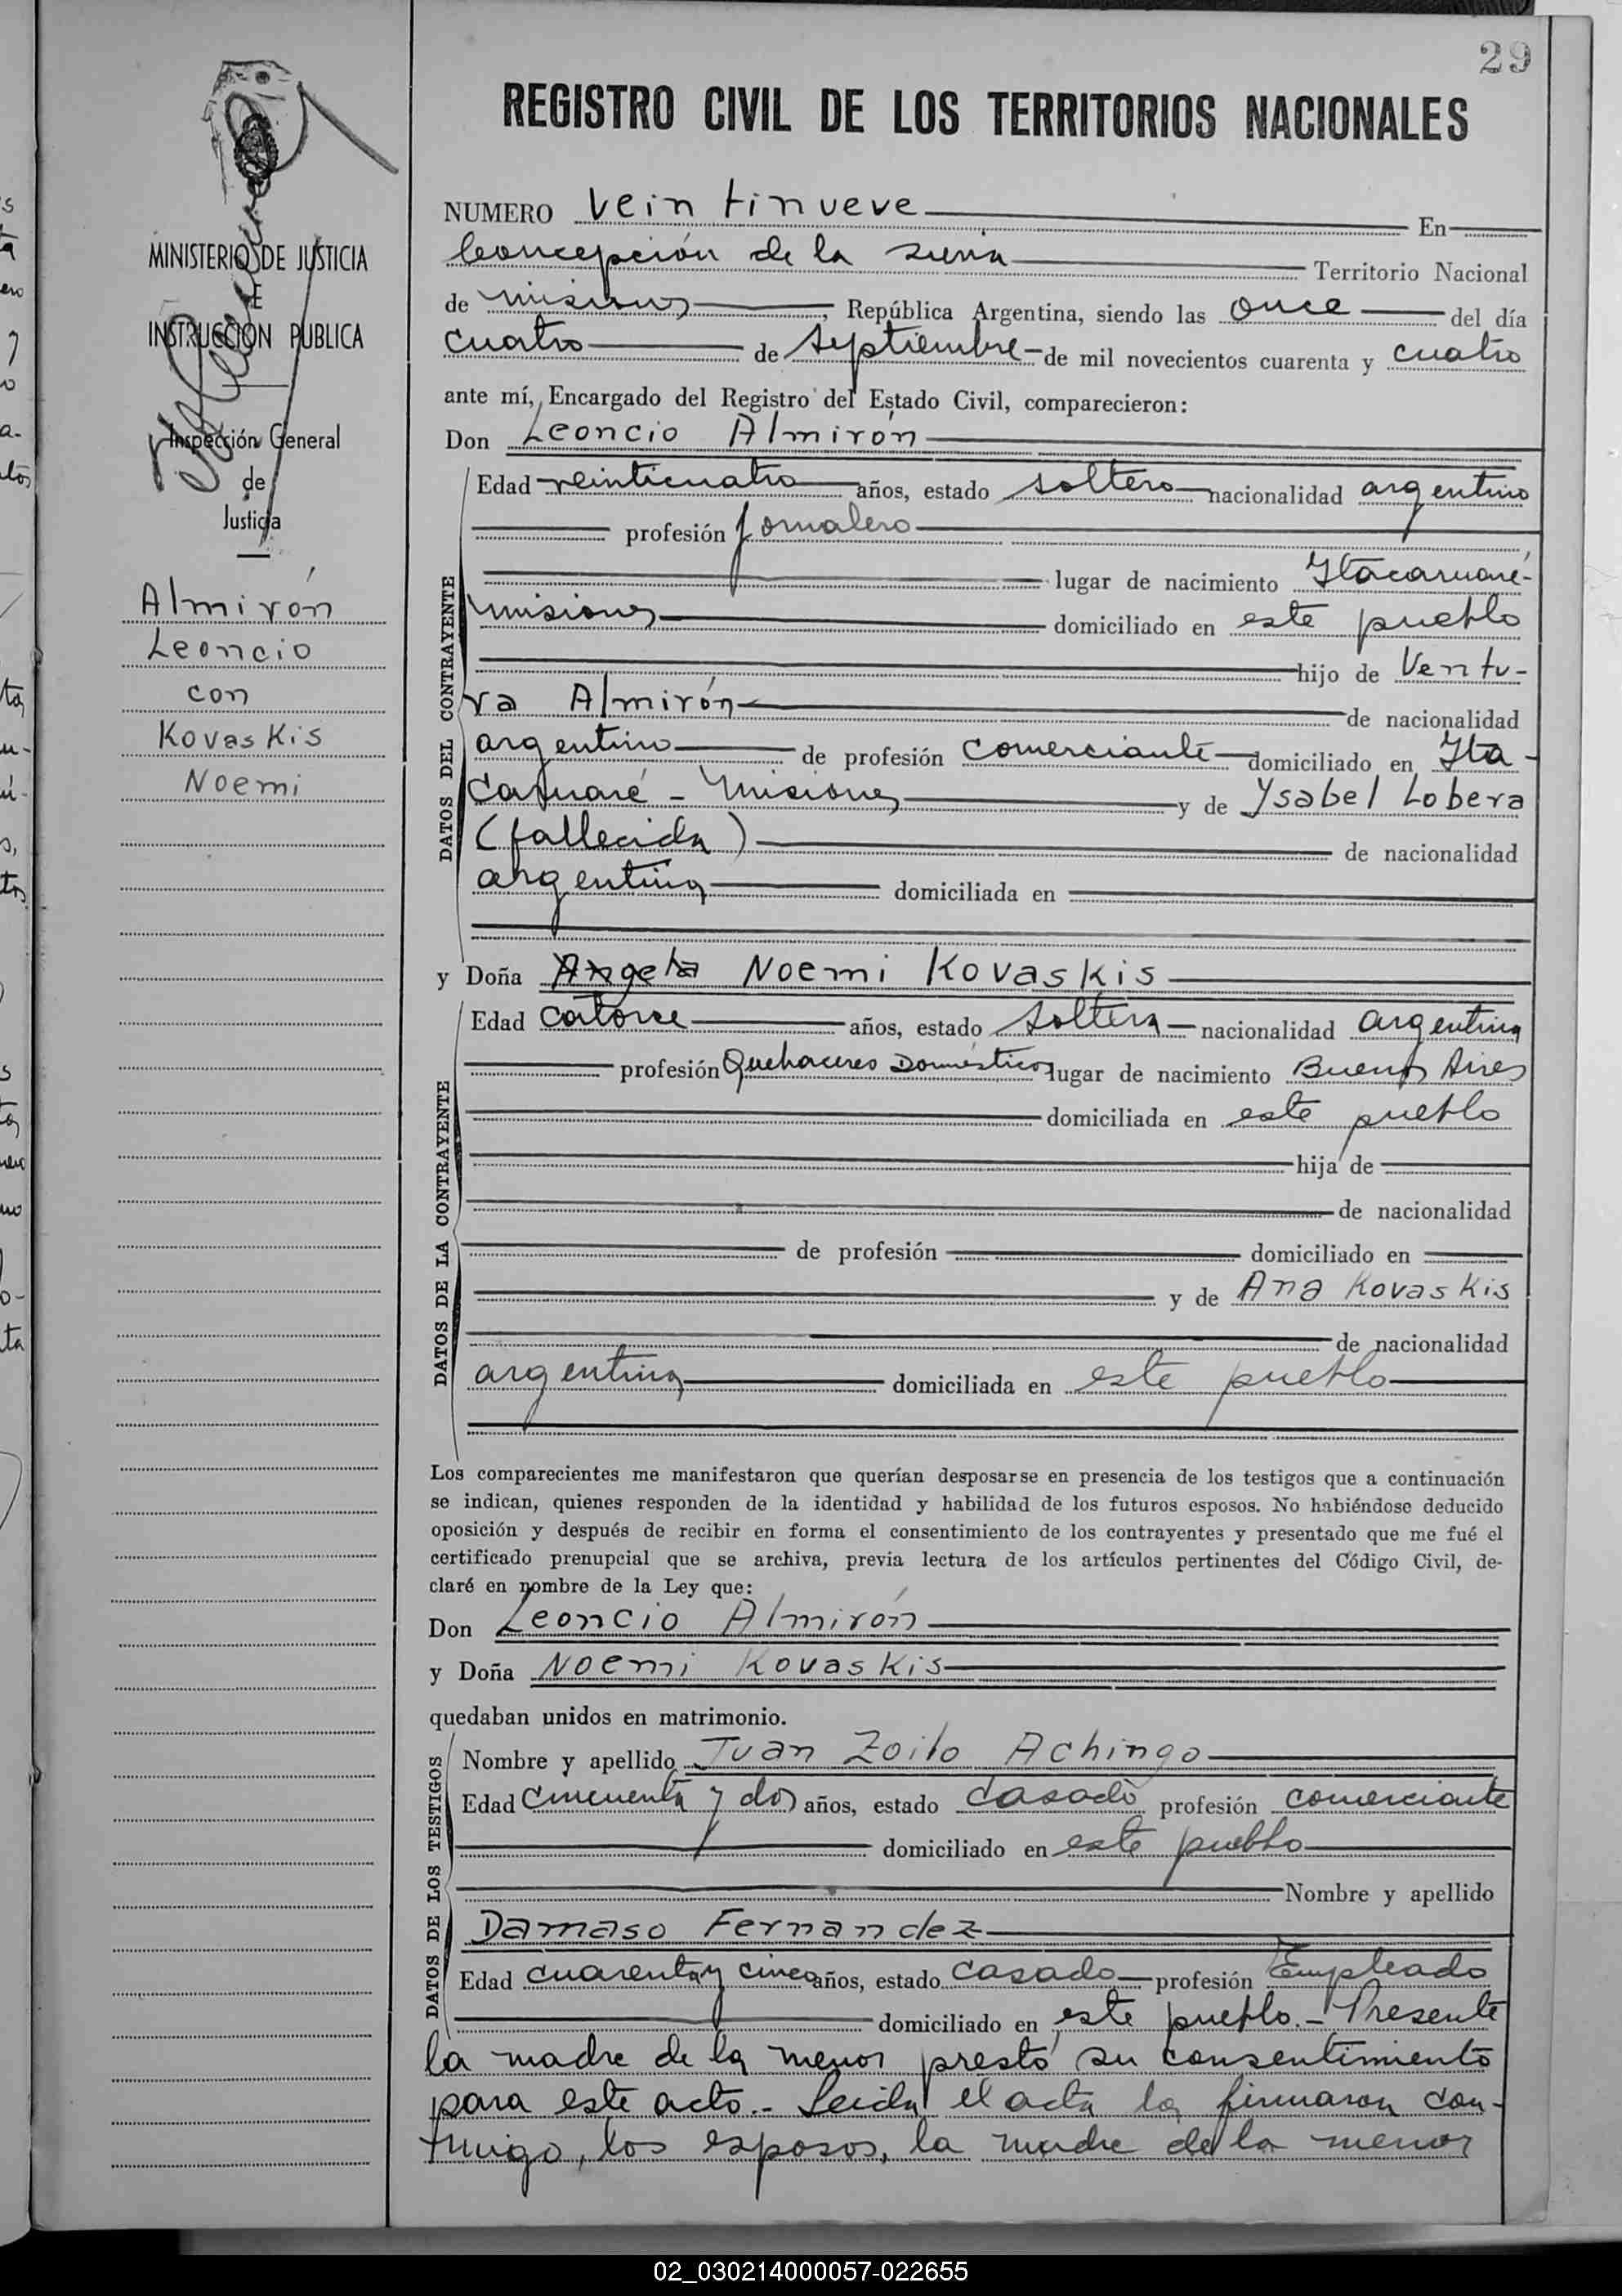 29
REGISTRO CIVIL DE LOS TERRITORIOS NACIONALES
MINISTERIO DE JUSTICIA
E
INSTRUCCIÓN PUBLICA
Inspección General
de
Justicia
Almirón
Leoncio
con
Kovaskis
Noemi
NUMERO veintinueve En
Concepción de la Sierra Territorio Nacional
de Misiones, República Argentina, siendo las once del día
cuatro de Septiembre de mil novecientos cuarenta y cuatro
ante mí, Encargado del Registro del Estado Civil, comparecieron:
Don Leoncio Almirón
DATOS DEL CONTRAYENTE
Edad veinticuatro años, estado soltero nacionalidad argentino
profesión Jornalero
lugar de nacimiento Itacaruaré-
Misiones domiciliado en este pueblo
hijo de Ventu-
ra Almirón de nacionalidad
argentino de profesión comerciante domiciliado en Ita-
caruaré - Misiones y de Ysabel Lobera
(fallecida) de nacionalidad
argentina domiciliada en
y Doña Angela Noemi Kovaskis
DATOS DE LA CONTRAYENTE
Edad catorce años, estado soltera nacionalidad argentina
profesión Quehaceres Domésticos lugar de nacimiento Buenos Aires
domiciliada en este pueblo
hija de
de nacionalidad
de profesión domiciliado en
y de Ana Kovaskis
de nacionalidad
argentina domiciliada en este pueblo
Los comparecientes me manifestaron que querían desposarse en presencia de los testigos que a continuación
se indican, quienes responden de la identidad y habilidad de los futuros esposos. No habiéndose deducido
oposición y después de recibir en forma el consentimiento de los contrayentes y presentado que me fué el
certificado prenupcial que se archiva, previa lectura de los artículos pertinentes del Código Civil, de-
claré en nombre de la Ley que:
Don Leoncio Almirón
y Doña Noemi Kovaskis
quedaban unidos en matrimonio.
DATOS DE LOS TESTIGOS
Nombre y apellido Juan Zoilo Achingo
Edad cincuenta y dos años, estado casado profesión comerciante
domiciliado en este pueblo
Nombre y apellido
Damaso Fernandez
Edad cuarenta y cinco años, estado casado profesión Empleado
domiciliado en este pueblo.- Presente
la madre de la menor prestó su consentimiento
para este acto.- Leida el acta la firmaron con-
migo, los esposos, la madre de la menor
02_030214000057-022655